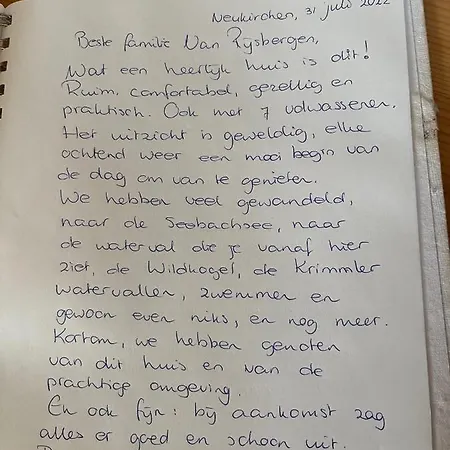 Neukirchen, 31 juli 2022
Beste familie Van Rijsbergen,
Wat een heerlijk huis is dit!
Ruim, comfortabel, gezellig en
praktisch. Ook met 7 volwassenen.
Het uitzicht is geweldig, elke
ochtend weer een mooi begin van
de dag om van te genieten.
We hebben veel gewandeld,
naar de Seebachsee, naar
de waterval die je vanaf hier
ziet, de Wildkogel, de Krimmler
watervallen, zwemmen en
gewoon even niks, en nog meer.
Kortom, we hebben genoten
van dit huis en van de
prachtige omgeving.
En ook fijn: bij aankomst zag
alles er goed en schoon uit.